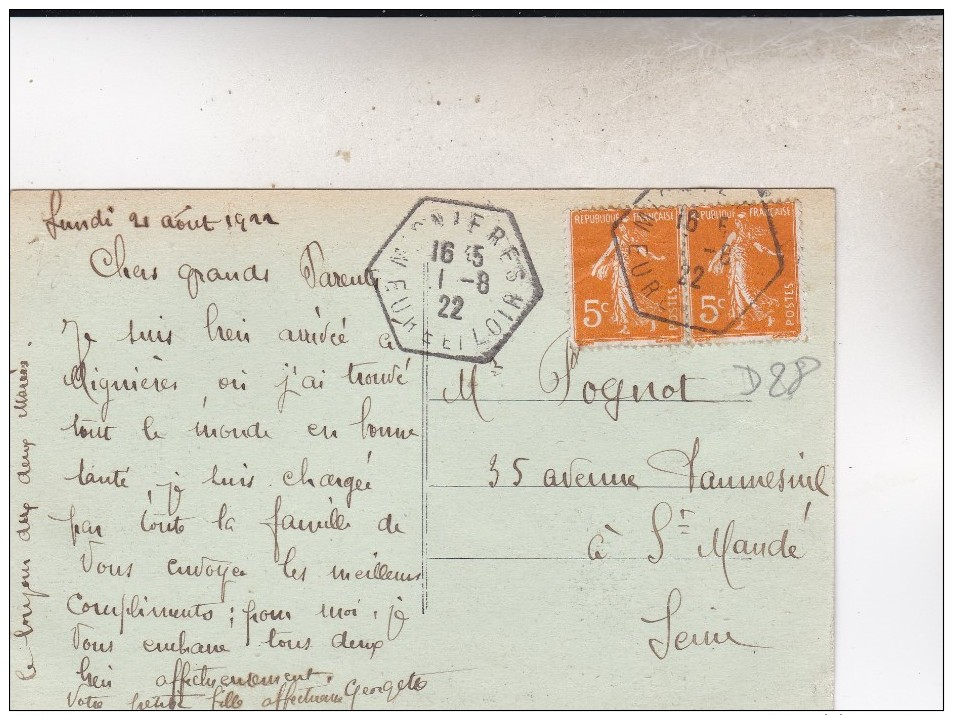 Lundi 21 août 1922
Chers grands Parents
Je suis bien arrivée à
Mignières où j'ai trouvé
tout le monde en bonne
santé, je suis chargée
par toute la famille de
Vous envoyer les meilleurs
compliments ; pour moi, je
Vous embrasse tous deux
bien affectueusement.
Votre petite fille affectueuse Georgette
le bonjour des deux Maries.
MIGNIERES
16 15
21 -8
22
EURE ET LOIR
RÉPUBLIQUE FRANÇAISE
5c
POSTES
RÉPUBLIQUE FRANÇAISE
5c
POSTES
16 15
-8
22
EURE
D28
M Pognot
35 avenue Daumesnil
à St Mandé
Seine